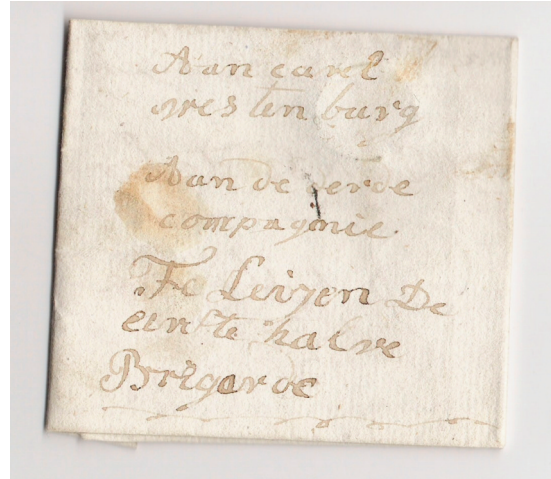 Aan carel
westenburg
Aan de derde
compagnie
Te Leiјen De
eerste halve
Brigaroe